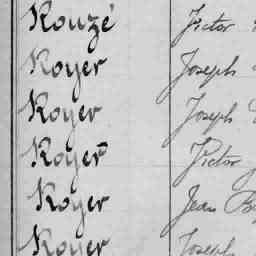 Rouzé Victor
Royer Joseph
Royer Joseph
Royer Victor
Royer Jean
Royer Joseph